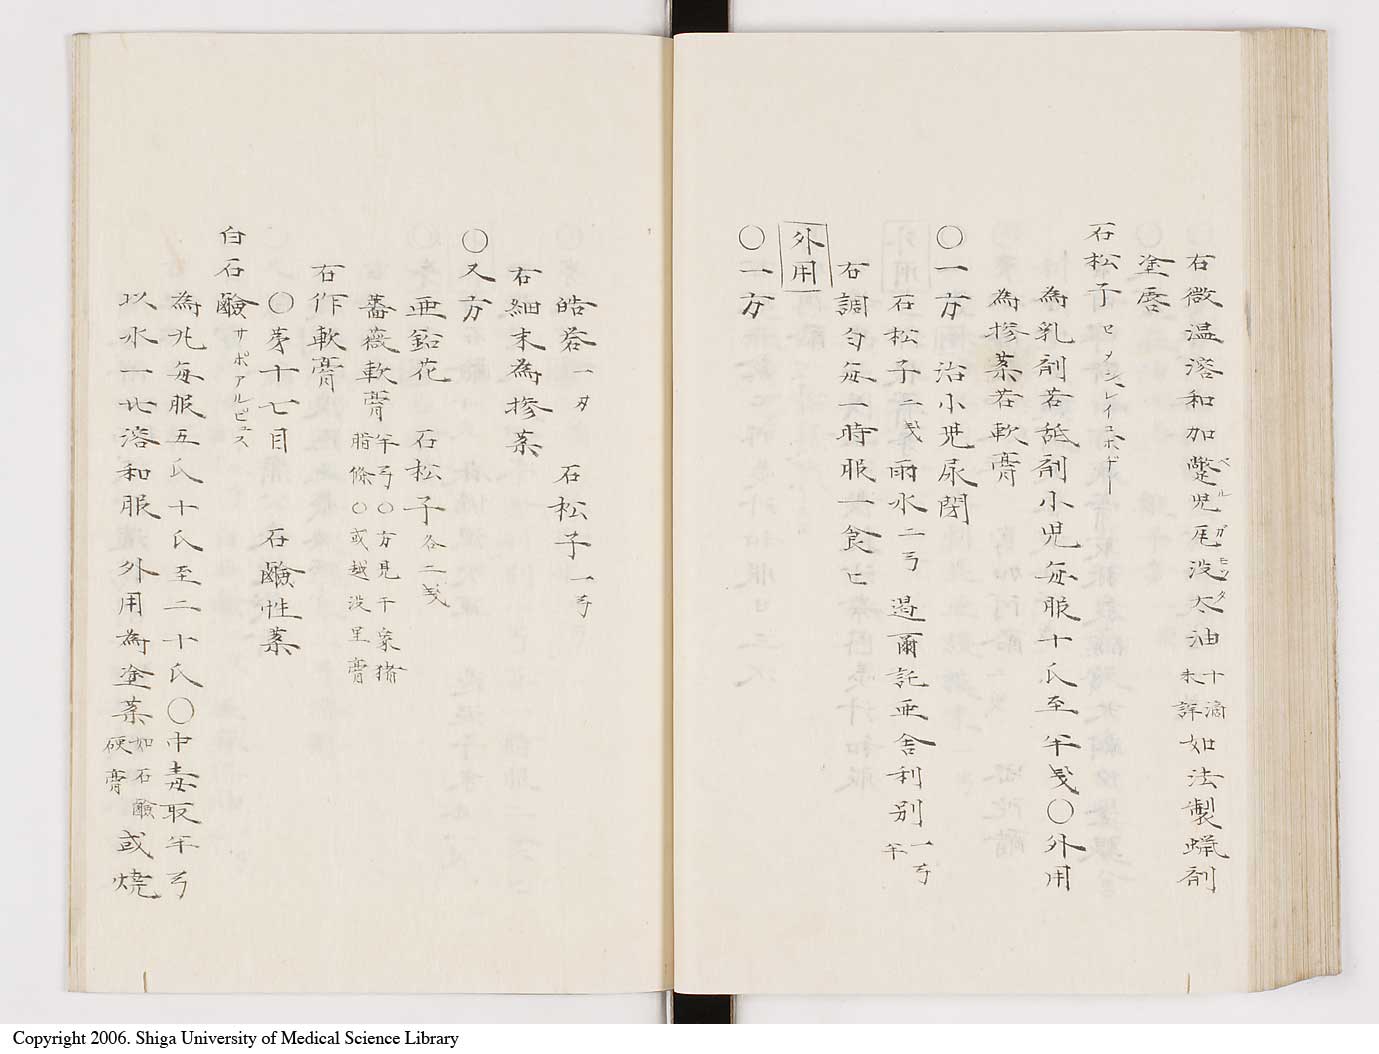 右微温溶和加鼈児尾没太油十滴未詳如法製蝋剤
ベルガモッタ
塗唇
石松子セーメンレイコホデー
為乳剤若舐剤小児毎服十氏至半戔〇外用
為摻薬若軟膏
〇一方 治小児尿閉
石松子二戔雨水二弓 過爾託亜舎利別一弓半
右調匀毎一時服一食匕
外用
〇一方
皓礬一タ 石松子一弓
右細末為摻薬
〇又方
亜鉛花 石松子各二戔
薔薇軟膏半弓〇方見于家猪脂條〇或越没里膏
右作軟膏
〇第十七目 石鹸性薬
白石鹸サポアルビュス
為丸毎服五氏十氏至二十氏〇中毒取半弓
以水一比溶和服 外用為塗薬如石鹸硬膏或焼
Copyright 2006. Shiga University of Medical Science Library